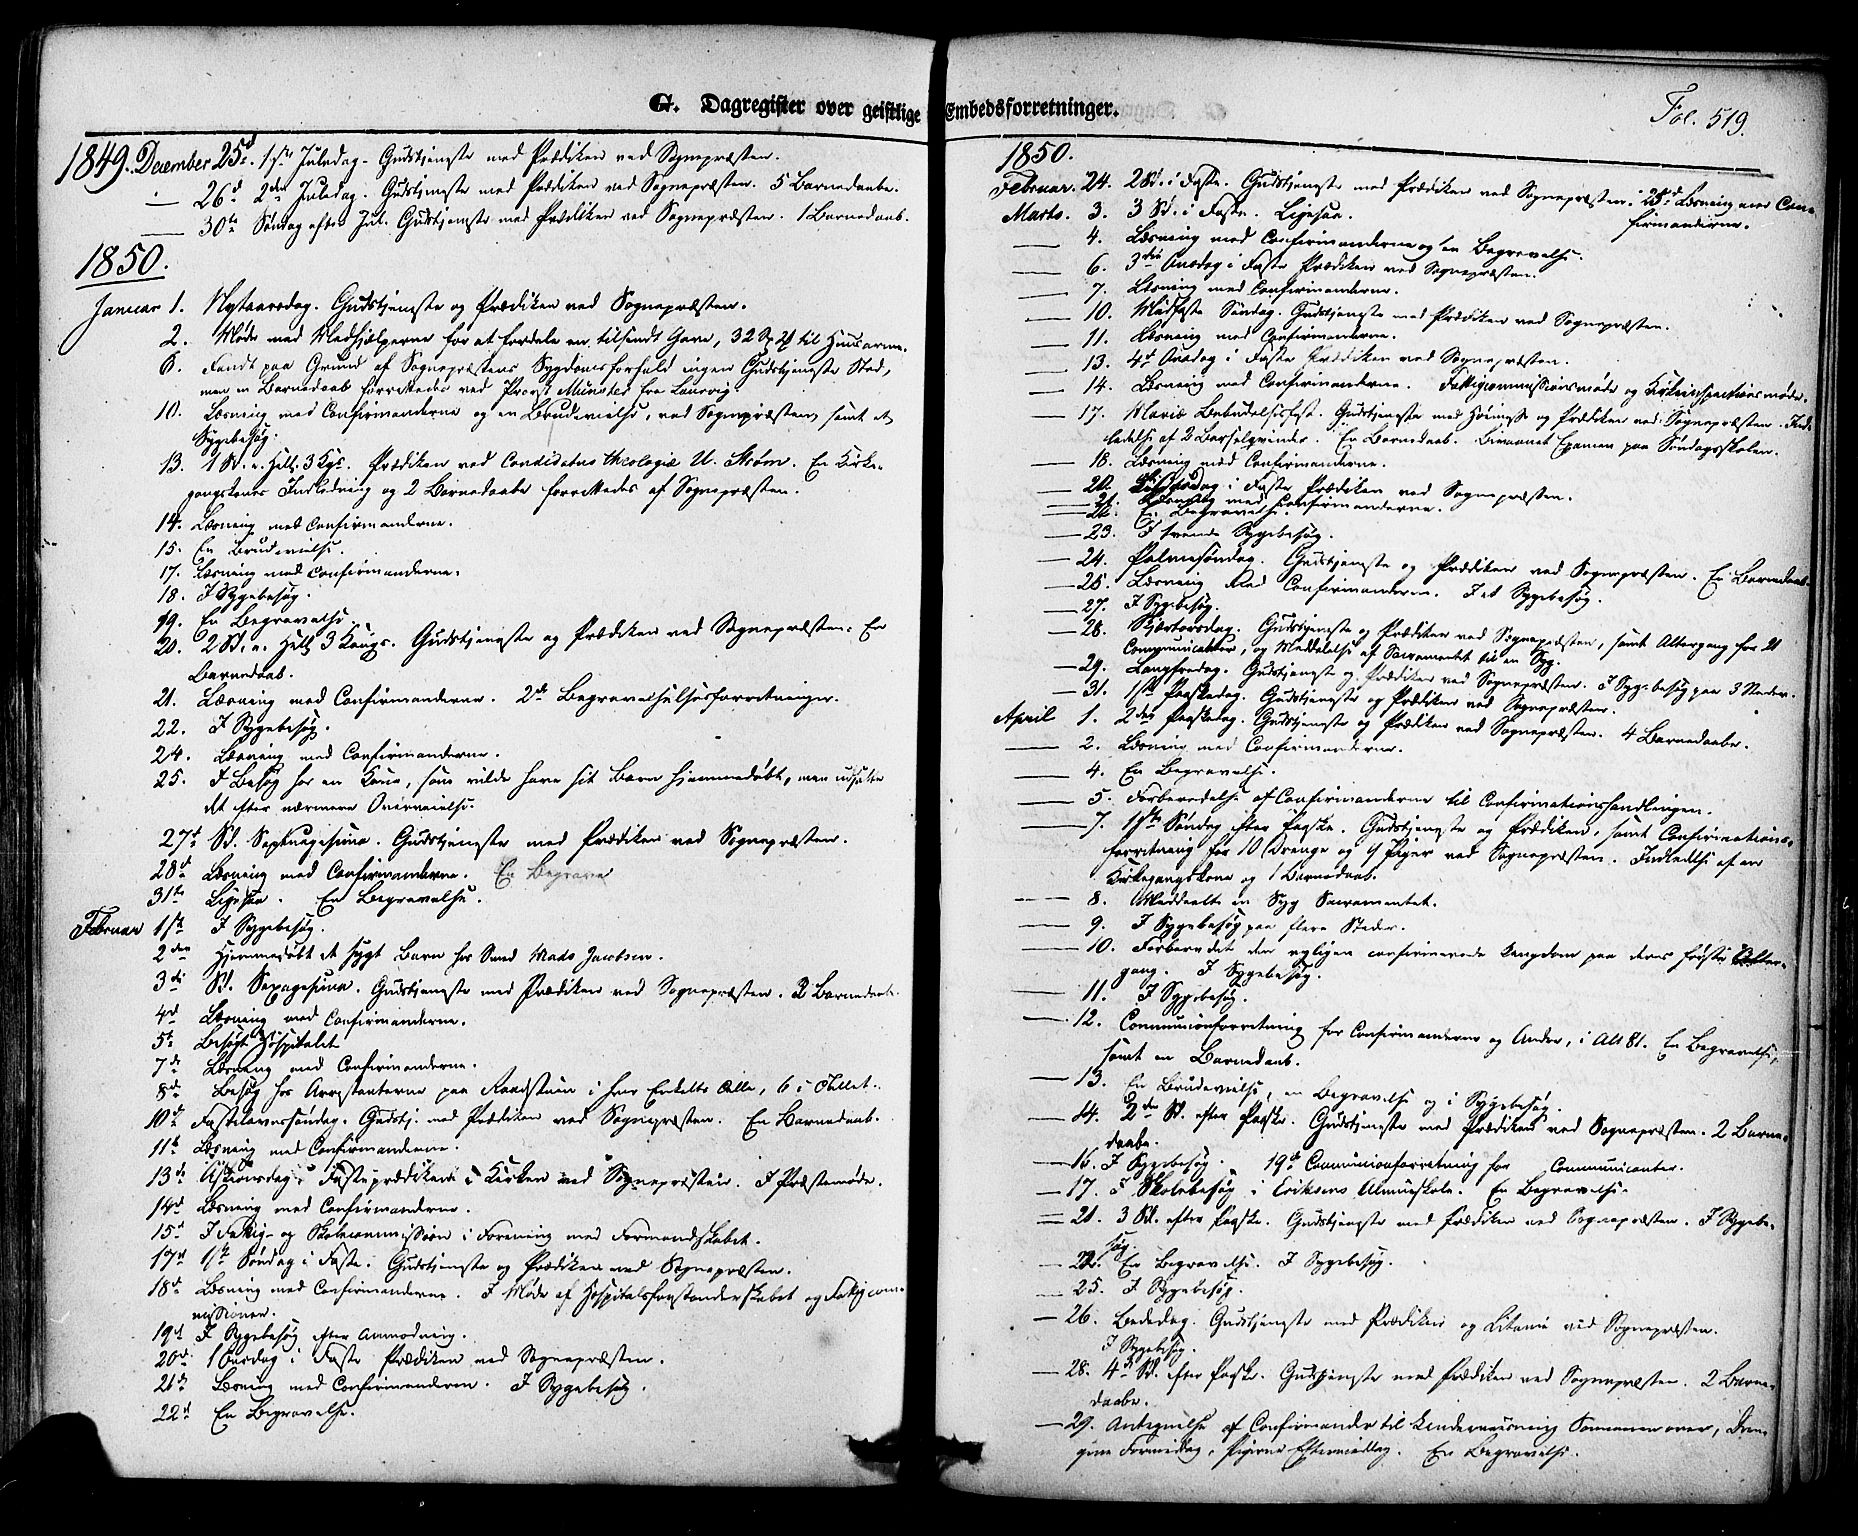 G. Dagregister over geistlige Embedsforretninger.
Fol. 519.
1849. December 25d. 1ste Juledag. Gudstjeneste med Prædiken ved Sognepræsten.
— 26d 2den Juledag. Gudstjeneste med Prædiken ved Sognepræsten. 5 Barnedaabe.
— 30te Søndag efter Jul. Gudstjeneste med Prædiken ved Sognepræsten. 1 Barnedaab.
1850.
Januar 1. Nytaarsdag. Gudstjeneste og Prædiken ved Sognepræsten.
2. Møde med Medhjælperne for at fordele en tilsendt Gave, 32 Sp til Huusarme.
6. Fandt paa Grund af Sognepræstens Sygdomsforfald ingen Gudstjeneste Sted,
men en Barnedaab forrettedes ved Provst Münsted fra Laurvig.
10. Læsning med Confirmanderne og en Brudevielse, ved Sognepræsten, samt et
Sygebesøg.
13. 1 Sd. e. Hell. 3 Kgr. Prædiken ved Candidatus theologiæ U. Strøm. En Kirke-
gangskones Indledning og 2 Barnedaabe forrettedes af Sognepræsten.
14. Læsning med Confirmanderne.
15. En Brudevielse.
17. Læsning med Confirmanderne.
18. I Sygebesøg.
19. En Begravelse.
20. 2 Sd. e. Hell 3 Kongs. Gudstjeneste og Prædiken ved Sognepræsten. En
Barnedaab.
21. Læsning med Confirmanderne. 2de
22. I Sygebesøg.
24. Læsning med Confirmanderne.
25. I Besøg hos en Kone, som vilde have sit Barn hjemmedøbt, men udsatte
det efter nærmere Overveielse.
27d Sd. Septuagesima. Gudstjeneste med Prædiken ved Sognepræsten.
28d Læsning med Confirmanderne. En Begrave
31te Ligesaa. En Begravelse.
Februar 1ste I Sygebesøg.
2den Hjemmedøbt et sygt Barn hos Smed Mads Jacobsen.
3die Sd. Sexagesima. Gudstjeneste med Prædiken ved Sognepræsten. 2 Barnedaabe.
4d Læsning med Confirmanderne.
5te Besøgt Hospitalet
7de Læsning med Confirmanderne.
8de Besøg hos Arrestanterne paa Raadstuen i hver Enkelts Celle, 6 i Tallet.
10de Fastelavnssøndag. Gudstj. med Prædiken ved Sognepræsten. En Barnedaab.
11te Læsning med Confirmanderne.
13de Askeonsdag. Fasteprædiken i Kirken ved Sognepræsten. I Præstemøde.
14d Læsning med Confirmanderne.
15d I Fattig- og Skolecommission i Forening med Formandskabet.
17d 1ste Søndag i Faste. Gudstjeneste og Prædiken ved Sognepræsten.
18d Læsning med Confirmanderne. I Møde af Hospitalsforstanderskabet og Fattigcom-
missionen.
19d I Sygebesøg efter Anmodning.
20d 1 Onsdag i Faste Prædiken ved Sognepræsten.
21de Læsning med Confirmanderne. I Sygebesøg.
22d En Begravelse.
1850.
Februar. 24. 2 Sd. i Faste. Gudstjeneste med Prædiken ved Sognepræsten. 25d Læsning med Con-
firmanderne.
Marts. 3. 3 Sd. i Faste. Ligesaa.
4. Læsning med Confirmanderne og en Begravelse.
6. 3die Onsdag i Faste Prædiken ved Sognepræsten.
7. Læsning med Confirmanderne.
10. Midfaste Søndag. Gudstjeneste med Prædiken ved Sognepræsten.
11. Læsning med Confirmanderne.
13. 4d Onsdag i Faste Prædiken ved Sognepræsten.
14. Læsning med Confirmanderne. Fattigcommissionsmøde og Kirkeinspectionsmøde.
17. Mariæ Bebudelsesfest. Gudstjeneste med Høimesse og Prædiken ved Sognepræsten. Ind-
ledelse af 2 Barselqvinder. En Barnedaab. Bivaanet Examen paa Søndagsskolen.
18. Læsning med Confirmanderne.
20. Onsdag i Faste Prædiken ved Sognepræsten.
21. Læsning med Confirmanderne.
22. En Begravelse.
23. I trende Sygebesøg.
24. Palmesøndag. Gudstjeneste og Prædiken ved Sognepræsten. En Barnedaab.
25. Læsning med Confirmanderne. I et Sygebesøg.
27. I Sygebesøg.
28. Skjærtorsdag. Gudstjeneste og Prædiken ved Sognepræsten, samt Altergang for 21
Communicanter, og Meddelelse af Sacramentet til en Syg.
29. Langfredag. Gudstjeneste og Prædiken ved Sognepræsten. I Sygebesøg paa 3 Steder.
31. 1ste Paaskedag. Gudstjeneste og Prædiken ved Sognepræsten.
April 1. 2den Paaskedag. Gudstjeneste og Prædiken ved Sognepræsten. 4 Barnedaabe.
2. Læsning med Confirmanderne.
4. En Begravelse.
5. Forberedelse af Confirmanderne til Confirmationshandlingen.
7. 1ste Søndag efter Paaske. Gudstjeneste og Prædiken, samt Confirmations-
forretning for 10 Drenge og 9 Piger ved Sognepræsten. Indledelse af en
Kirkegangskone og 1 Barnedaab.
8. Meddeelte en Syg Sacramentet.
9. I Sygebesøg paa flere Steder.
10. Forberedet den nyligen confirmerede Ungdom paa deres første Alter-
gang. I Sygebesøg.
11. I Sygebesøg.
12. Communionforretning for Confirmanderne og Andre, i Alt 81. En Begravelse,
samt en Barnedaab.
13. En Brudevielse, en Begravelse og i Sygebesøg.
14. 2den Sd. efter Paaske. Gudstjeneste med Prædiken ved Sognepræsten. 2 Barne-
daabe.
16. I Sygebesøg. 19d Communionforretning for Communicanter.
17. I Skolebesøg i Eriksens Almueskole. En Begravelse.
21. 3 Sd. efter Paaske. Gudstjeneste med Prædiken ved Sognepræsten. I Sygebe-
søg.
22. En Begravelse. I Sygebesøg.
25. I Sygebesøg.
26. Bededag. Gudstjeneste med Prædiken og Litanie ved Sognepræsten.
I Sygebesøg.
28. 4de Sd. efter Paaske. Gudstjeneste med Prædiken ved Sognepræsten. 2 Barne-
daabe.
29. Antegnelse af Confirmander til Underviisning Sommeren over, Dren-
gene Formiddag, Pigerne Eftermiddag. En Begravelse.